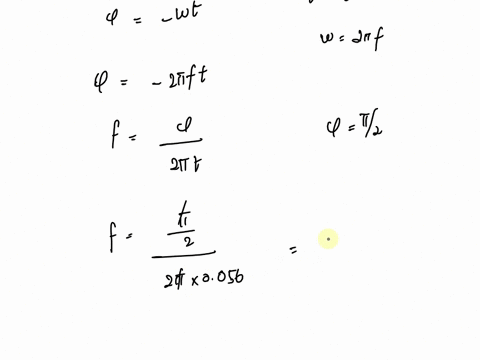 φ = -wt
w = 2πf
φ = -2πft
f = φ / 2πt
φ = π/2
f = π/2 / 2π × 0.056 =